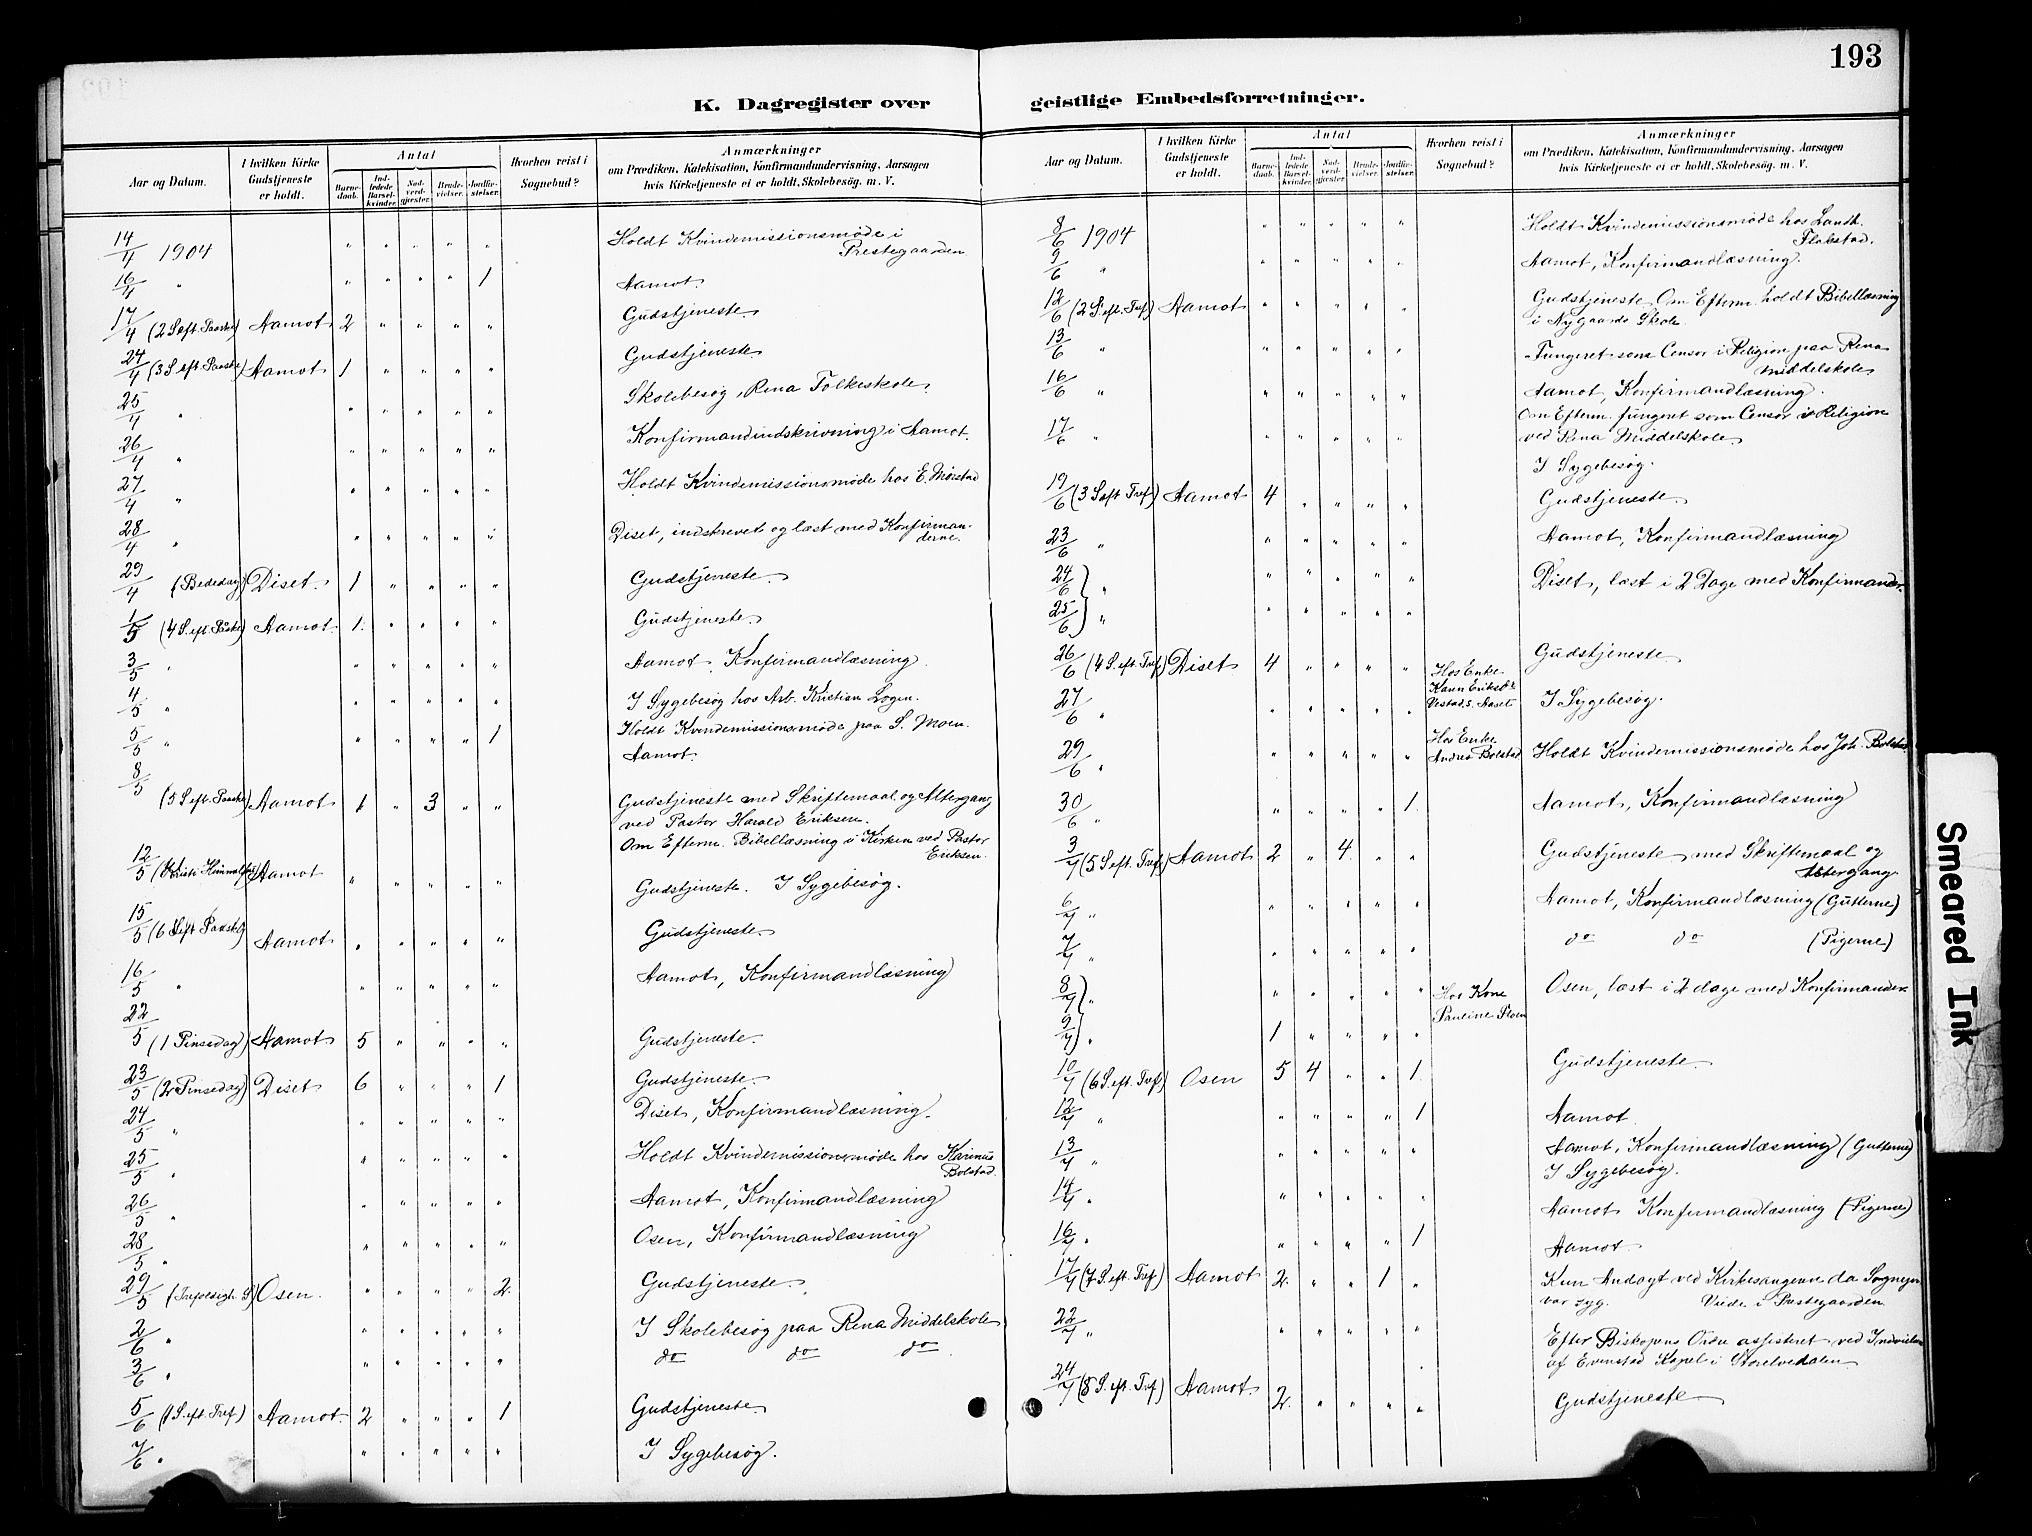 193
K. Dagregister over
geistlige Embedsforretninger.
Aar og Datum.
I hvilken Kirke Gudstjeneste er holdt.
Antal
Barne-daab.
Ind-ledede Barsel-kvinder.
Nad-verd-gjæster.
Brude-vielser.
Jordfæ-stelser.
Hvorhen reist i Sognebud?
Anmærkninger
om Prædiken, Katekisation, Konfirmandundervisning, Aarsagen
hvis Kirketjeneste ei er holdt, Skolebesøg. m. V.
14/4 1904 " " " " " Holdt Kvindemissionsmøde i
Prestegaarden
16/4 " " " " " 1 Aamot.
17/4 (2 S eft. Paaske) Aamot 2 " " " " Gudstjeneste
24/4 (3 S eft. Paaske) Aamot 1 " " " " Gudstjeneste
25/4 " " " " " " Skolebesøg, Rena Folkeskole.
26/4 " " " " " " Konfirmandindskrivning i Aamot.
27/4 " " " " " " Holdt Kvindemissionsmøde hos E. Mørstad
28/4 " " " " " " Diset, indskrevet og læst med Konfirman-
derne.
29/4 (Bededag) Diset. 1 " " " " Gudstjeneste
1/5 (4 S. eft. Påske) Aamot. 1. " " " " Gudstjeneste
3/5 " " " " " " Aamot. Konfirmandlæsning.
4/5 " " " " " " I Sygebesøg hos Arb. Kristian Logen.
5/5 " " " " " 1 Holdt Kvindemissionsmøde paa S. Moen.
Aamot.
8/5 (5 S eft. Paaske) Aamot 1 " 3 " " Gudstjeneste med Skriftemaal og Altergang
ved Pastor Harald Eriksen.
Om Efterm. Bibellæsning i Kirken ved Pastor
Eriksen.
12/5 (Kristi Himmelfart) Aamot " " " " " Gudstjeneste. I Sygebesøg.
15/5 (6 S eft Paaske) Aamot " " " " " Gudstjeneste.
16/5 " " " " " " Aamot, Konfirmandlæsning
22/5 (1 Pinsedag) Aamot. 5 " " " " Gudstjeneste.
23/5 (2 Pinsedag) Diset 6 " " " 1 Gudstjeneste.
24/5 " " " " " " Diset, Konfirmandlæsning.
25/5 " " " " " " Holdt Kvindemissionsmøde hos Karinus
Bolstad.
26/5 " " " " " " Aamot, Konfirmandlæsning
28/5 " " " " " " Osen, Konfirmandlæsning
29/5 (Trefoldigh. S) Osen. " " " " 2 Gudstjeneste.
2/6 " " " " " " I Skolebesøg paa Rena Middelskole
3/6 " " " " " " do do do
5/6 (1 S. eft. Tref.) Aamot. 2 " " " 1 Gudstjeneste
7/6 " " " " " " I Sygebesøg.
Aar og Datum.
I hvilken Kirke Gudstjeneste er holdt.
Antal
Barne-daab.
Ind-ledede Barsel-kvinder.
Nad-verd-gjæster.
Brude-vielser.
Jordfæ-stelser.
Hvorhen reist i Sognebud?
Anmærkninger
om Prædiken, Katekisation, Konfirmandundervisning, Aarsagen
hvis Kirketjeneste ei er holdt, Skolebesøg. m. V.
8/6 1904 " " " " " Holdt Kvindemissionsmøde hos Landh.
Flakstad.
9/6 " " " " " " Aamot, Konfirmandlæsning.
12/6 (2 S. eft. Tref.) Aamot " " " " " Gudstjeneste. Om Efterm. holdt Bibellæsning
i Nygaards Skole.
13/6 " " " " " " Fungeret som Censor i Religion paa Rena
Middelskole
16/6 " " " " " " Aamot, Konfirmandlæsning.
Om Efterm. fungeret som Censor i Religion
17/6 " " " " " " ved Rena Middelskole
I Sygebesøg.
19/6 (3 S eft. Tref.) Aamot 4 " " " " Gudstjeneste.
23/6 " " " " " " Aamot, Konfirmandlæsning
24/6 " " " " " " Diset, læst i 2 Dage med Konfirmander.
25/6 " " " " " "
26/6 (4 S. eft. Tref) Diset 4 " " " " Gudstjeneste
27/6 " " " " " " Hos Enke
Vestad s. Aaset I Sygebesøg.
29/6 " " " " " " Hos Enke
Andrea Bolstad Holdt Kvindemissionsmøde hos Joh. Bolstad
30/6 " " " " " 1. Aamot, Konfirmandlæsning
3/7 (5 S eft. Tref) Aamot 2 " 4 " " Gudstjeneste med Skriftemaal og
Altergang.
6/7 " " " " " " Aamot, Konfirmandlæsning (Gutterne)
7/7 " " " " " " do do (Pigerne)
8/7 " " " " " " Hos Kone
Pauline Osen, læst i 2 dage med Konfirmander
9/7 " 1 " " " "
10/7 (6 S. eft. Tref.) Osen 5 4 " " 1. Gudstjeneste.
12/7 " " " " " 1 Aamot.
13/7 " " " " " " Aamot, Konfirmandlæsning (Gutterne)
I Sygebesøg.
14/7 " " " " " " Aamot Konfirmandlæsning (Pigerne)
16/7 " " " " " 1 Aamot.
17/7 (7 S. eft. Tref.) Aamot 2. " " 1 " Kun Andagt ved Kirkesangeren da Sognepr
var syg. Viede i Prestegaarden.
22/7 " " " " " " Efter Biskopens Ordre assisteret ved Indvielsen
af Evenstad Kapel i Storelvedalen
24/7 (8 S. eft. Tref) Aamot. 2. " " " " Gudstjeneste
Smeared Ink